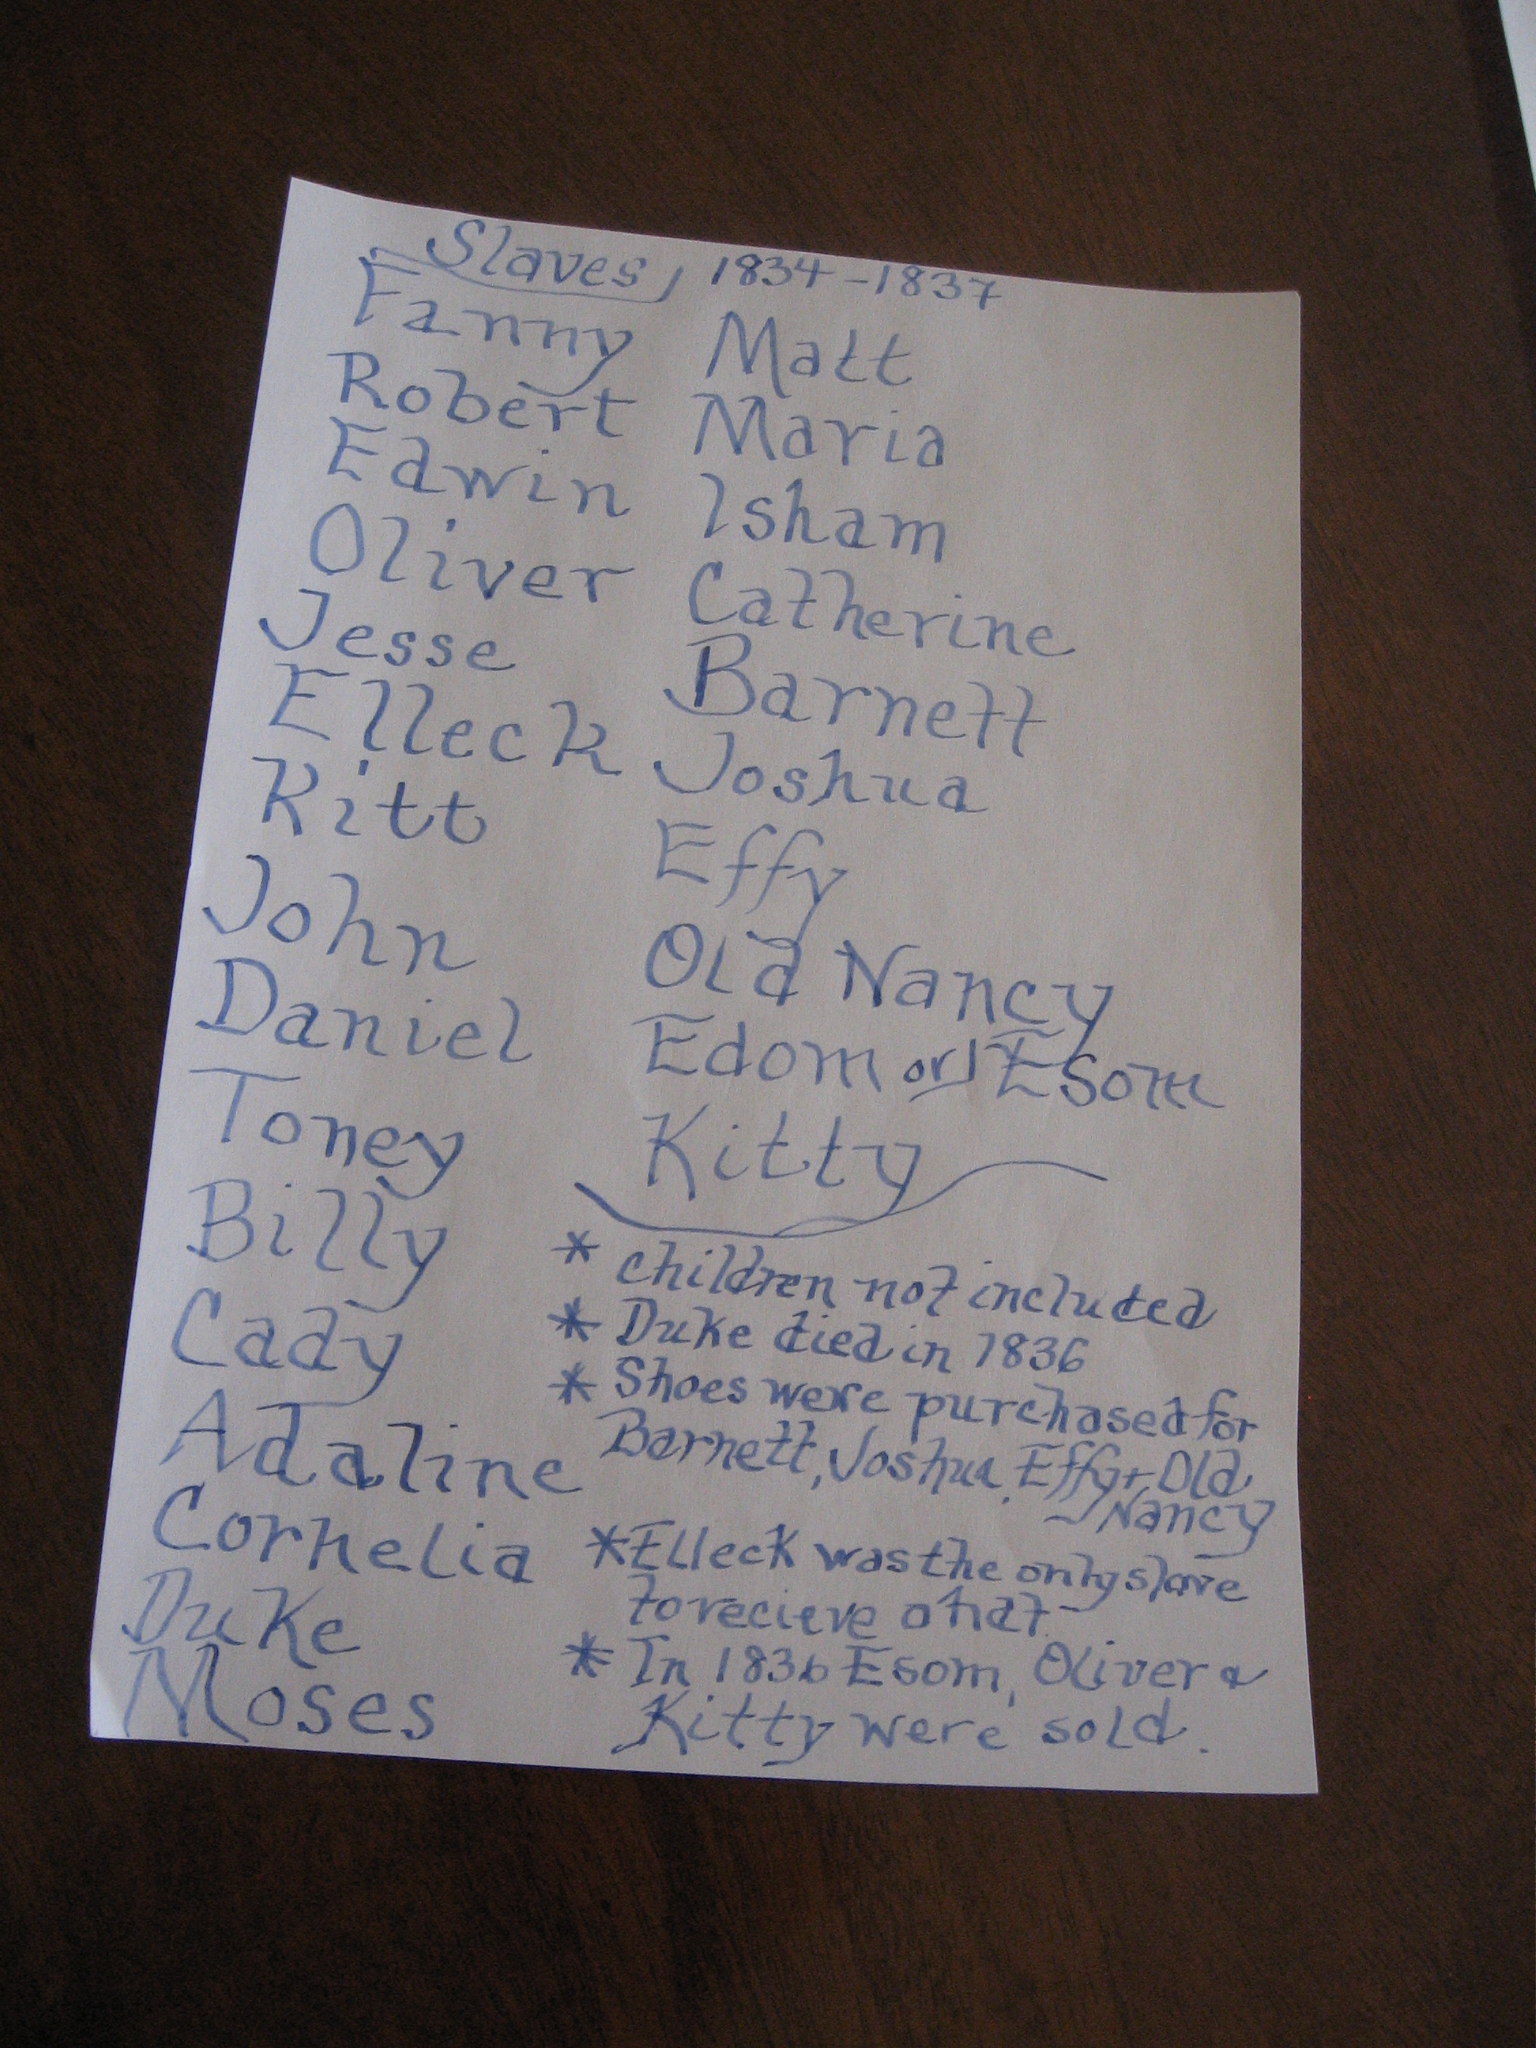 Slaves, 1834-1837
Fanny
Robert
Edwin
Oliver
Jesse
Elleck
Kitt
John
Daniel
Toney
Billy
Cady
Adaline
Cornelia
Duke
Moses
Matt
Maria
Isham
Catherine
Barnett
Joshua
Effy
Old Nancy
Edom or Esom
Kitty
* children not included
* Duke died in 1836
* Shoes were purchased for
Barnett, Joshua, Effy + Old
Nancy
* Elleck was the only slave
to recieve a hat
* In 1836 Esom, Oliver &
Kitty were sold.